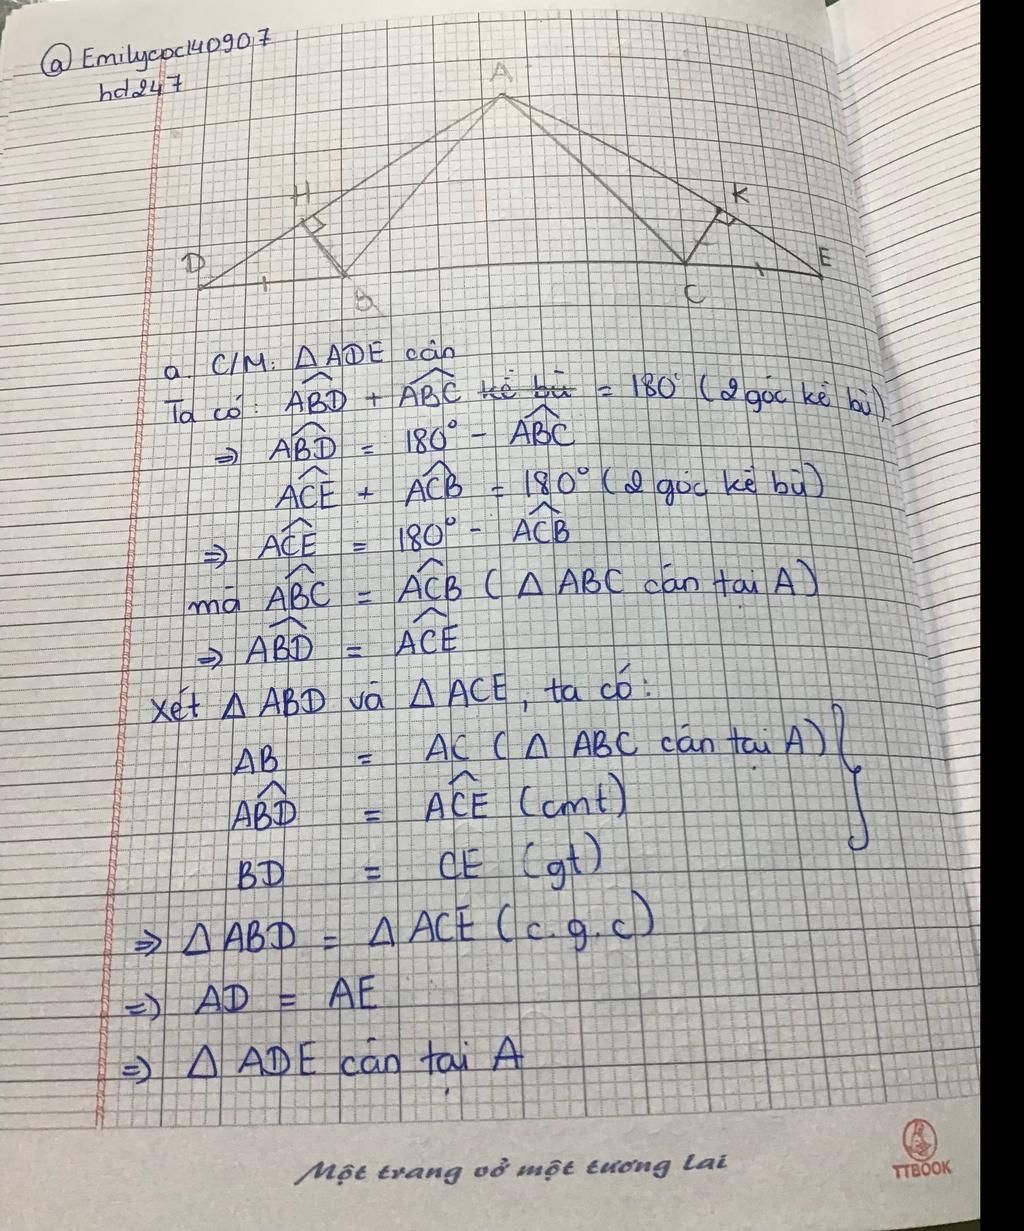 @Emilycoc140907
hd247
A
H
K
D
E
B
C
a. C/M: Δ ADE cân
Ta có: ABD̂ + ABĈ kề bù = 180° (2 góc kề bù)
⇒ ABD̂ = 180° - ABĈ
ACÊ + ACB̂ = 180° (2 góc kề bù)
⇒ ACÊ = 180° - ACB̂
mà ABĈ = ACB̂ (Δ ABC cân tại A)
⇒ ABD̂ = ACÊ
Xét Δ ABD và Δ ACE, ta có:
AB = AC (Δ ABC cân tại A)
ABD̂ = ACÊ (cmt)
BD = CE (gt)
⇒ Δ ABD = Δ ACE (c.g.c)
⇒ AD = AE
⇒ Δ ADE cân tại A
Một trang vở một tương lai
TTBOOK